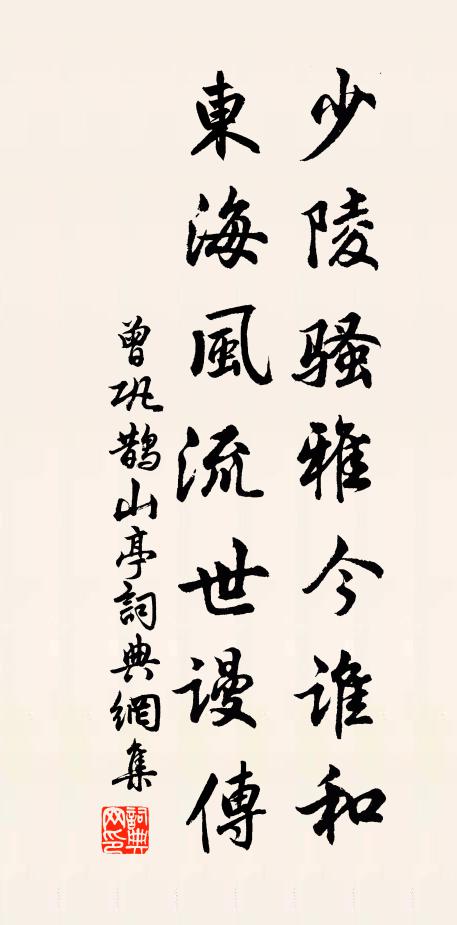 少陵骚雅今谁和
東海風流世谩傳
曾巩鹊山亭詞典網集
詞典网印